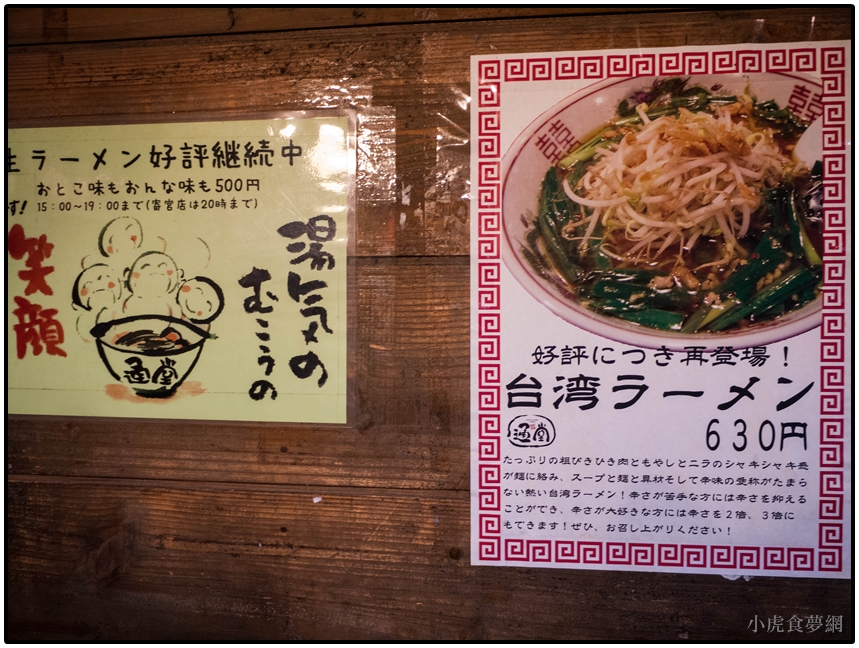 生ラーメン好評継続中
おとこ味もおんな味も500円
す! 15:00〜19:00まで(寄宮店は20時まで)
湯気の
むこうの
笑顔
通堂
好評につき再登場!
台湾ラーメン
通堂
630円
たっぷりの粗びきひき肉ともやしとニラのシャキシャキ感
が麺に絡み、スープと麺と具材そして辛味の愛称がたまら
ない熱い台湾ラーメン!辛さが苦手な方には辛さを抑える
ことができ、辛さが大好きな方には辛さを2倍、3倍に
もできます!ぜひ、お召し上がりください!
小虎食夢網